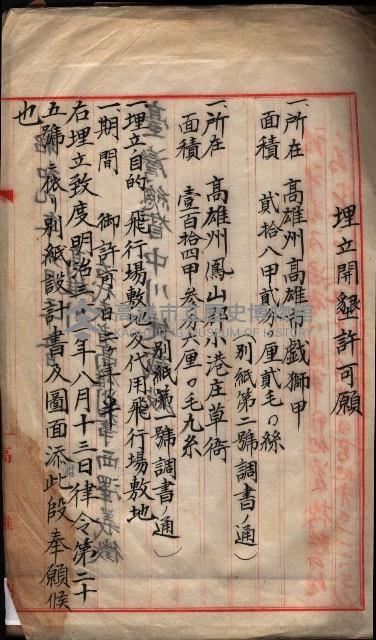 埋立開墾許可願
一、所在 高雄州高雄市戯獅甲
面積 貳拾八甲貳分 厘貳毛〇絲
別紙第二號調書ノ通)
一、所在 高雄州鳳山郡小港庄草衙
面積 壹百拾四甲参分六厘〇毛九糸
別紙第 號調書ノ通)
一、埋立目的 飛行場敷地及代用飛行場敷地
一、期間 御許可ノ日ヨリ 年
右埋立致度明治三十 年八月十三日律令第二十
五號ニ依リ別紙設計書及圖面添此段奉願候
也
高雄市立歷史博物館
高雄